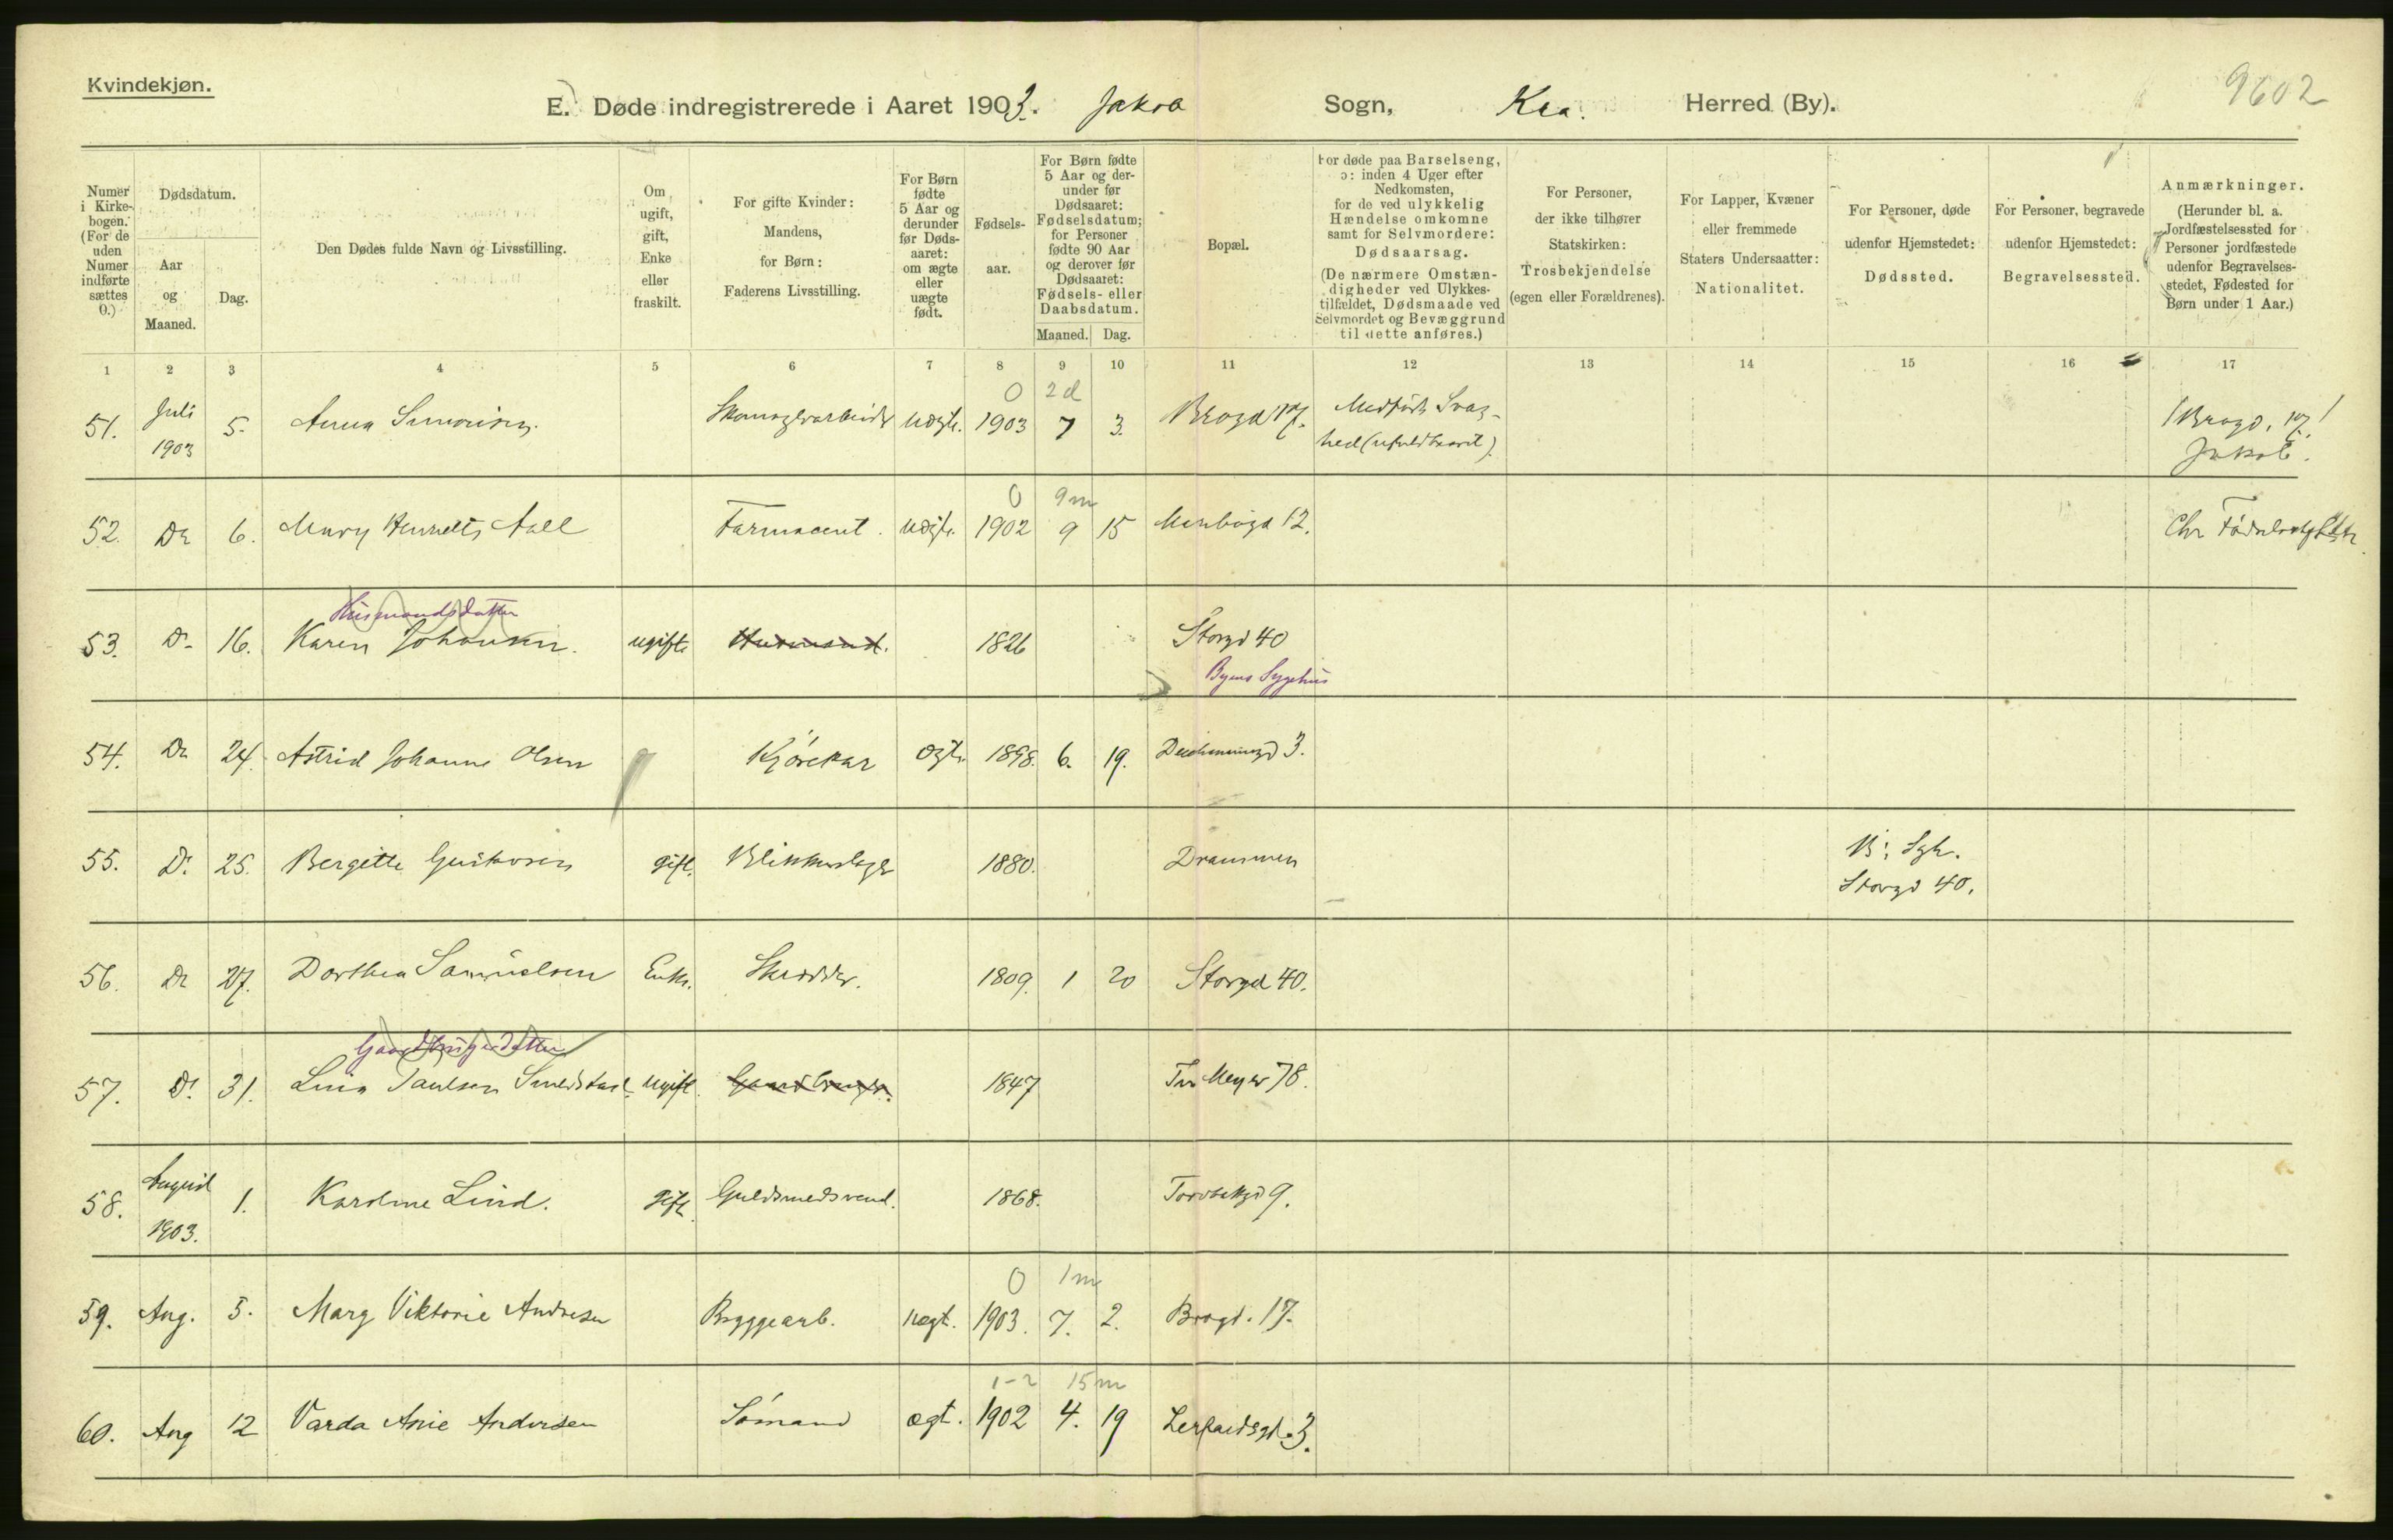 Kvindekjøn.
E. Døde indregistrerede i Aaret 1903. Jakob Sogn, Kra. Herred (By).
9602
Numer i Kirkebogen. (For de uden Numer indførte sættes 0.)
Dødsdatum.
Aar og Maaned.
Dag.
Den Dødes fulde Navn og Livsstilling.
Om ugift, gift, Enke eller fraskilt.
For gifte Kvinder: Mandens, for Børn: Faderens Livsstilling.
For Børn fødte 5 Aar og derunder før Dødsaaret: om ægte eller uægte født.
Fødselsaar.
For Børn fødte 5 Aar og derunder før Dødsaaret: Fødselsdatum; for Personer fødte 90 Aar og derover før Dødsaaret: Fødsels- eller Daabsdatum.
Maaned. Dag.
Bopæl.
For døde paa Barselseng, ɔ: inden 4 Uger efter Nedkomsten, for de ved ulykkelig Hændelse omkomne samt for Selvmordere: Dødsaarsag. (De nærmere Omstændigheder ved Ulykkestilfældet, Dødsmaade ved Selvmordet og Bevæggrund til dette anføres.)
For Personer, der ikke tilhører Statskirken: Trosbekjendelse (egen eller Forældrenes).
For Lapper, Kvæner eller fremmede Staters Undersaatter: Nationalitet.
For Personer, døde udenfor Hjemstedet: Dødssted.
For Personer, begravede udenfor Hjemstedet: Begravelsessted.
Anmærkninger. (Herunder bl. a. Jordfæstelsessted for Personer jordfæstede udenfor Begravelsesstedet, Fødested for Børn under 1 Aar.)
1 2 3 4 5 6 7 8 9 10 11 12 13 14 15 16 17
0 2d
51. Juli 1903 5. Anna Simonsen. uægte. 1903 7 3. Brogd 17. Medfødt Svaghed (ufuldbaaret). (Brogd. 17.) Jakob.
0 9m
52. Do 6. Mary Henriette Aall Farmaceut. uægte. 1902 9 15 12. Chr
Husmandsdatter
53. Do 16. Karen Johansen. ugift. Husmand. 1826 Storgd 40
Byens Sygehus
54. Do 24. Astrid Johanne Olsen Kjørekar ægte 1898. 6. 19. Deichmansgd 3.
55. Do 25. Bergitte Gustavsen gift. Blikkenslager 1880. Drammen B. Sgh. Storgd 40.
56. Do 27. Dorthea Samuelsen Enke. Skrædder. 1809. 1 20 Storgd 40.
Gaardbrugerdatter
57. Do 31. Lina Paulsen Smedstad ugift. Gaardbruger. 1847 Tv Meyer 78.
58. August 1903. 1. Karoline Lind. gift. Guldsmedsvend. 1868. Torvbakgd 9.
0 1m
59. Aug. 5. Marg Viktorie Andresen Byggearb. uægt. 1903. 7. 2. Brogd. 17.
1-2 15m
60. Aug 12 Varda Anie Andersen Sømand ægt. 1902 4. 19 Lerfaldsgd. 3.